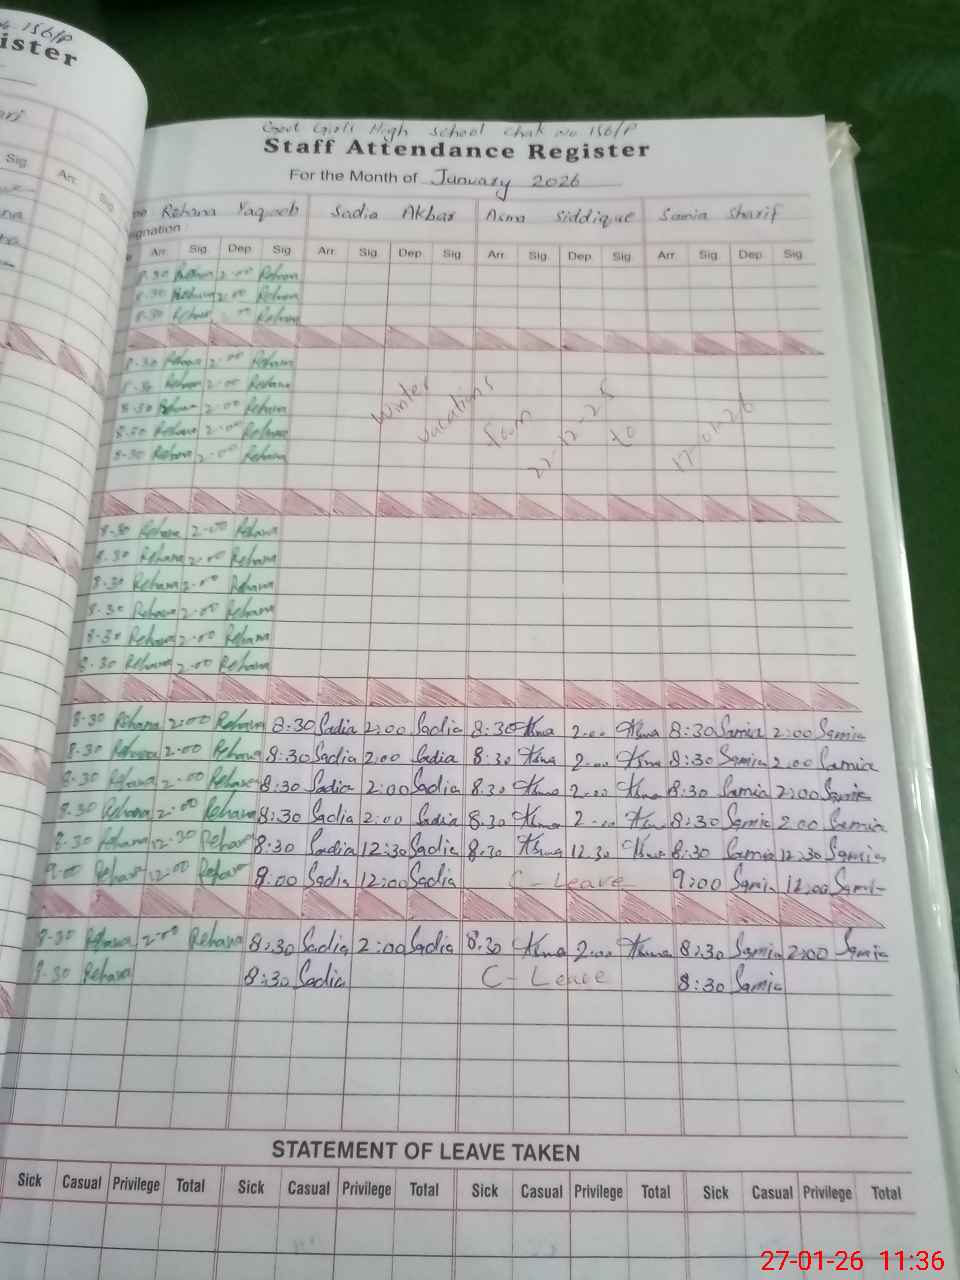 156/P
ister
Govt Girls High School Chak No 156/P
Staff Attendance Register
For the Month of January 2026
Rehana Yaqoob Sadia Akbar Asma Siddique Samia Sharif
ignation :
Sig Arr. Sig
Arr. Sig. Dep. Sig Arr. Sig. Dep. Sig. Arr. Sig. Dep. Sig. Arr. Sig. Dep. Sig.
8.30 Rehana 2.00 Rehana
8.30 Rehana 2.00 Rehana
8.30 Rehana 2.00 Rehana
8.30 Rehana 2.00 Rehana
8.30 Rehana 2.00 Rehana
8.30 Rehana 2.00 Rehana
8.30 Rehana 2.00 Rehana
8.30 Rehana 2.00 Rehana
Winter Vacations from 22-12-25 to 17-01-26
8.30 Rehana 2.00 Rehana
8.30 Rehana 2.00 Rehana
8.30 Rehana 2.00 Rehana
8.30 Rehana 2.00 Rehana
8.30 Rehana 2.00 Rehana
8.30 Rehana 2.00 Rehana
8.30 Rehana 2.00 Rehana 8:30 Sadia 2:00 Sadia 8:30 Asma 2.00 Asma 8:30 Samia 2:00 Samia
8.30 Rehana 2.00 Rehana 8:30 Sadia 2:00 Sadia 8:30 Asma 2.00 Asma 8:30 Samia 2.00 Samia
8.30 Rehana 2.00 Rehana 8:30 Sadia 2:00 Sadia 8.30 Asma 2.00 Asma 8:30 Samia 2:00 Samia
8.30 Rehana 2.00 Rehana 8:30 Sadia 2:00 Sadia 8.30 Asma 2.00 Asma 8:30 Samia 2:00 Samia
8.30 Rehana 12.30 Rehana 8:30 Sadia 12:30 Sadia 8.30 Asma 12.30 Asma 8:30 Samia 12:30 Samia
9.00 Rehana 12.00 Rehana 9:00 Sadia 12:00 Sadia C-Leave 9:00 Samia 12:00 Samia
8.30 Rehana 2.00 Rehana 8:30 Sadia 2:00 Sadia 8.30 Asma 2.00 Asma 8:30 Samia 2:00 Samia
8.30 Rehana 8:30 Sadia C-Leave 8:30 Samia
STATEMENT OF LEAVE TAKEN
Sick Casual Privilege Total Sick Casual Privilege Total Sick Casual Privilege Total Sick Casual Privilege Total
27-01-26 11:36